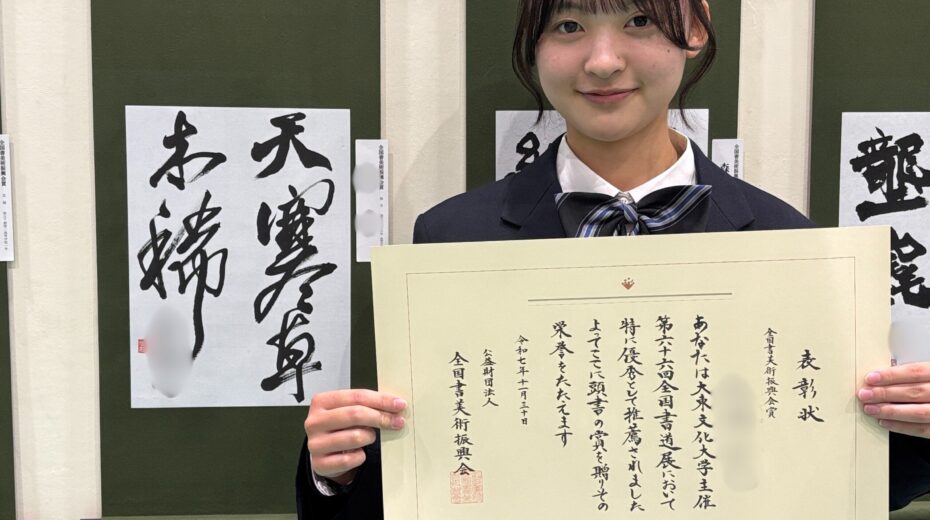 天寒草
木稀
全国書美術振興会賞
全国書美術振興会賞
表彰状
全国書美術振興会賞
あなたは大東文化大学主催
第六十六回全国書道展において
特に優秀として推薦されました
よってここに頭書の賞を贈りその
栄誉をたたえます
令和七年十一月三十日
公益財団法人
全国書美術振興会